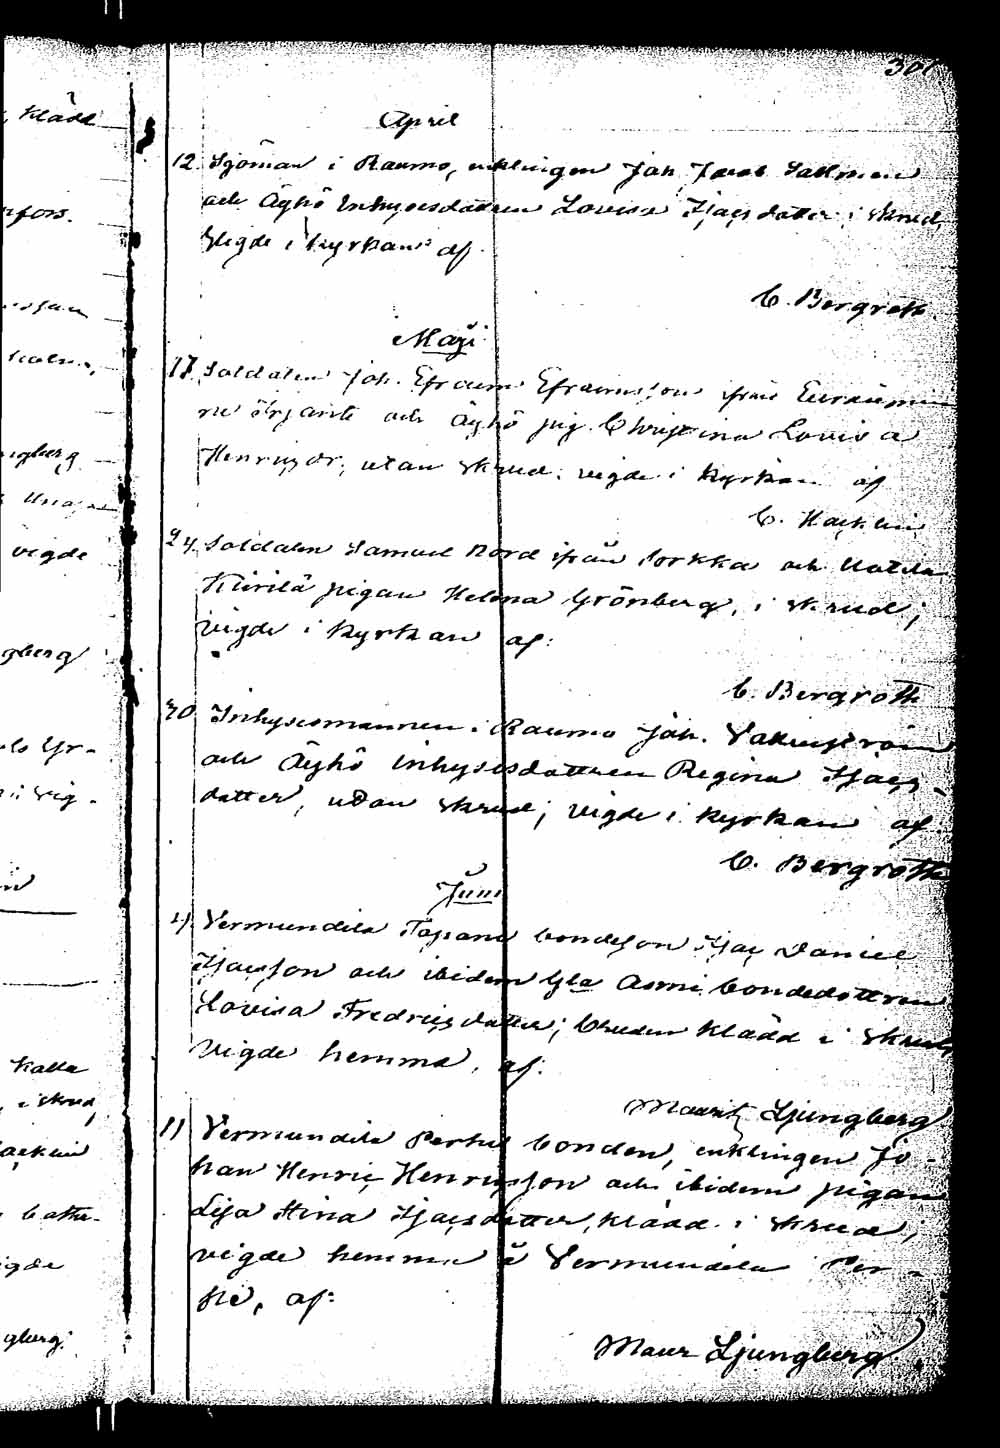 301
April
12. Sjöman i Raumo, enklingen Joh. Jacob Sallmen
och Äyhö Inhysesdottren Lovisa Isacsdotter i skrud,
vigde i kyrkan af
C. Bergroth.
Maji
17 Soldaten Joh. Efraim Efraimsson ifrån
och Äyhö pig. Christina Lovisa
Henricsdr, utan skrud; vigde i kyrkan af
C. Hacklin
24. Soldaten Samuel Nord ifrån Sorkka och
Kiirilä pigan Helena Grönberg, i skrud;
vigde i kyrkan af:
C. Bergroth
30 Inhysesmannen i Raumo Joh.
och Äyhö inhysesdottren Regina Isacs-
dotter, utan skrud; vigde i kyrkan af
C. Bergroth
Juni
4. Vermundila Tapani bondeson Isac Daniel
Isacsson och ibidem Yla Asmi bondedottren
Lovisa Fredricsdotter; bruden klädd i skrud,
vigde hemma, af:
Maurit Ljungberg
11 Vermundila Perhe bonden, enklingen Jo-
han Henric Henricsson och ibidem pigan
Lisa Stina Isacsdotter, klädd i skrud;
vigde hemma å Vermundila Per-
he, af:
Maur Ljungberg.
klädd
vigde
Kalla
i skrud,